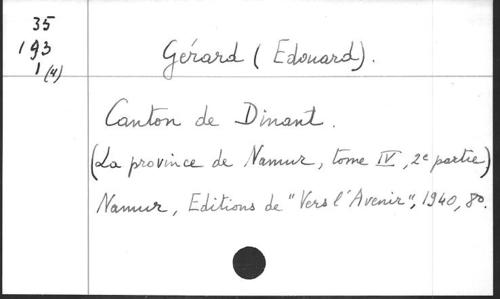 35
193
1 (4)
Gérard (Edouard).
Canton de Dinant.
(La province de Namur, tome IV, 2e partie)
Namur, Editions de "Vers l'Avenir", 1940, 8o.